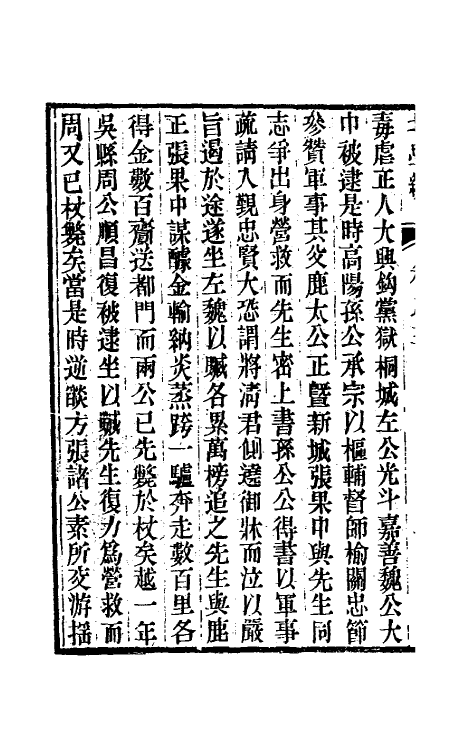 毒虐正人大興鉤黨獄桐城左公光斗嘉善魏公大
中被逮是時高陽孫公承宗以樞輔督師榆關忠節
參贊軍事其父鹿太公正曁新城張果中與先生同
志爭出身營救而先生密上書孫公公得書以軍事
疏請入覲忠賢大恐謂將淸君側遶御牀而泣以嚴
旨遏於途遂坐左魏以贓各累萬榜追之先生與鹿
正張果中謀醵金輸納炎蒸跨一驢奔走數百里各
得金數百齎送都門而兩公已先斃於杖矣越一年
吳縣周公順昌復被逮坐以贓先生復力爲營救而
周又已杖斃矣當是時逆燄方張諸公素所交游搖